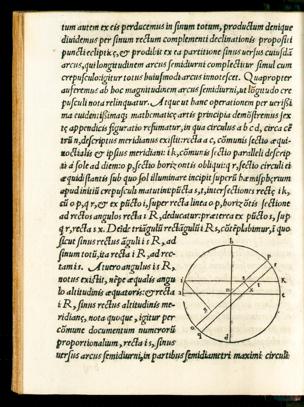 tum autem ex eis perducemus in sinum totum, productum denique
diuidemus per sinum rectum complementi declinationis propositi
puncti eclipticæ, & prodibit ex ea partitione sinus versus cuiusdã
arcus, qui longitudinem arcus semidiurni complectitur simul cum
crepusculo: igitur totus huiusmodi arcus innotescet. Quapropter
auferemus ab hoc magnitudinem arcus semidiurni, ut lõgitudo cre
pusculi nota relinquatur. Atque ut hanc operationem per verissi
ma euidentissimaq; mathematicæ artis principia demõstremus, sex
tæ appendicis figuratio resumatur, in qua circulus a b c d, circa cẽ
trũ n, descriptus meridianus existit: recta a c, cõmunis sectio æqui-
noctialis & ipsius meridiani: i k, cõmunis sectio paralleli descrip
ti à sole ad diem: o p, sectio horizontis obliqui: q r, sectio circuli
æquidistantis sub quo sol illuminare incipit superũ hæmisphærium
apud initiũ crepusculi matutini: pũcta s, t, intersectiones rectę i k,
cũ o p, q r, & ex pũcto i, super recta linea o p, horizõtis sectione
ad rectos angulos recta i R, deducatur: præterea ex pũcto s, sup
q r, recta s x. Deide triangulũ rectãgulũ i R s, cõtẽplabimur, i quo
sicut sinus rectus ãguli i s R, ad
sinum totũ, ita recta i R, ad rec-
tam i s. At vero angulus i s R,
notus existit, nẽpe æqualis angu
lo altitudinis æquatoris: & recta
i R, sinus rectus altitudinis me-
ridianę, nota quoque, igitur per
cõmune documentum numerorũ
proportionalium, recta i s, sinus
versus arcus semidiurni, in partibus semidiametri maximi circuli
b
p
r
i
s
t
K
a
n
x
c
R
q
o
d